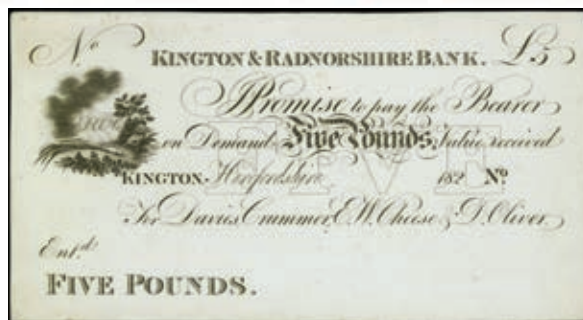 No KINGTON & RADNORSHIRE BANK. £5
I Promise to pay the Bearer
on Demand Five Pounds Value received
FIVE
KINGTON. Herefordshire 182 No
For Davies Crummer, E.W. Cheese & D. Oliver
Ent.d
FIVE POUNDS.